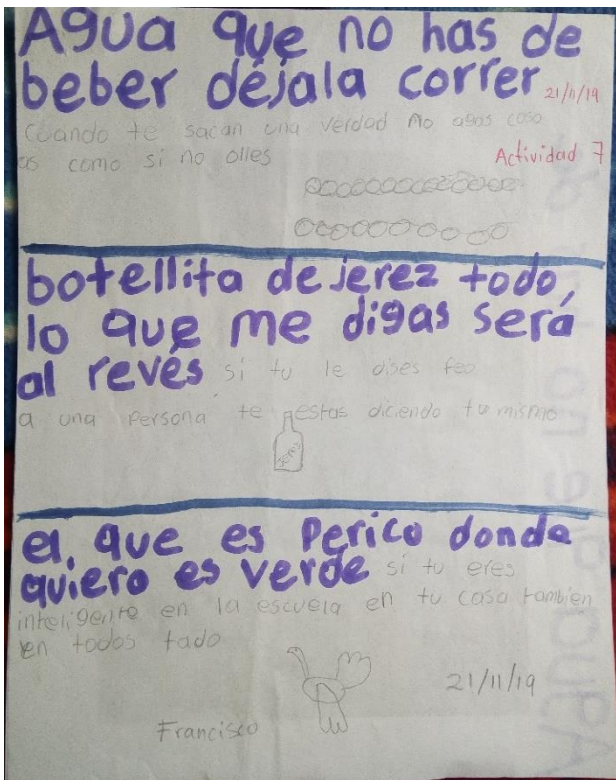 Agua que no has de
beber déjala correr 21/11/19
Cuando te sacan una verdad no agas caso
as como si no olles
Actividad 7
botellita de jerez todo,
lo que me digas será
al revés si tu le dises feo
a una persona te estas diciendo tu mismo
Jerez
el que es Perico donde
quiero es verde si tu eres
inteligente en la escuela en tu casa tambien
en todos tado
21/11/19
Francisco